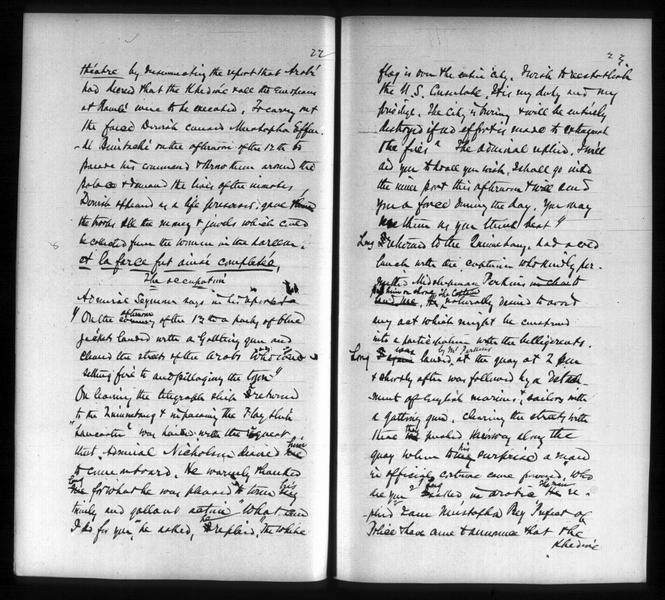 22
théatre by disseminating the report that Arabi
had heard that the Khedive & all the Europeans
at Ramleh were to be executed. To carry out
the farce Dervish caused Mustapha Effen-
on the afternoon of the 12th to
parade his command & throw them around the
palace & demand the lives of the inmates,
Dervish appeared as a life preserver, gave
the troops all the money & jewels which could
be collected from the women in the hareem.
et la farce fut ainsi complétée,
The occupation
Admiral Seymour says in his report
"On the afternoon of the 13th a party of blue
jackets landed with a Gatling gun and
cleared the streets of the Arabs who were
setting fire to and pillaging the town"
On leaving the telegraph ship returned
to the Quinnebaug & in passing the Flag ship
"Lancaster" was hailed with the request
that Admiral Nicholson desired him
to come onboard. He warmly thanked
Long for what he was pleased to term his
timely and gallant action "What can
I do for you", he asked, he replied, "The White
23
flag is over the entire city. I wish to reestablish
the U.S. Consulate. It is my duty and my
privilege. The City is burning & will be entirely
destroyed if no effort is made to extinguish
the fires" The admiral replied. I will
aid you to do all you wish. I shall go into
the inner port this afternoon & will send
you a force during the day. You may
use them as you think best"
Long returned to the Quinnebaug, had a
lunch with the captain who kindly per-
mitted Midshipman Perkins
him on shore. The Captain
He naturally desired to avoid
any act which might be construed
into a participation with the belligerents.
Long was landed by Mr Perkins at the quay at 2 p.m.
& shortly after was followed by a detach-
ment of English marines & sailors with
a gatling gun, clearing the streets with
the pushed their way along the
quay when to his surprise a man
in official costume came forward, "Who
are you" Long asked in arabic. The man re-
plied "I am Mustapha Bey Prefect of
Police I have come to announce that the
Khedive